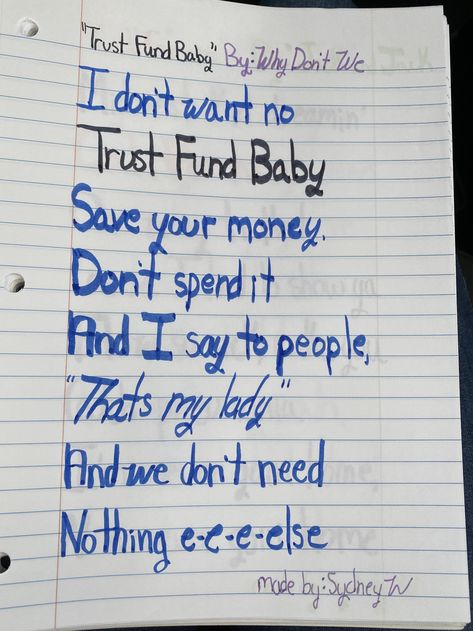 "Trust Fund Baby" By: Why Don't We
I don't want no
Trust Fund Baby
Save your money.
Don't spend it
And I say to people,
"Thats my lady"
And we don't need
Nothing e-e-e-else
made by: Sydney W